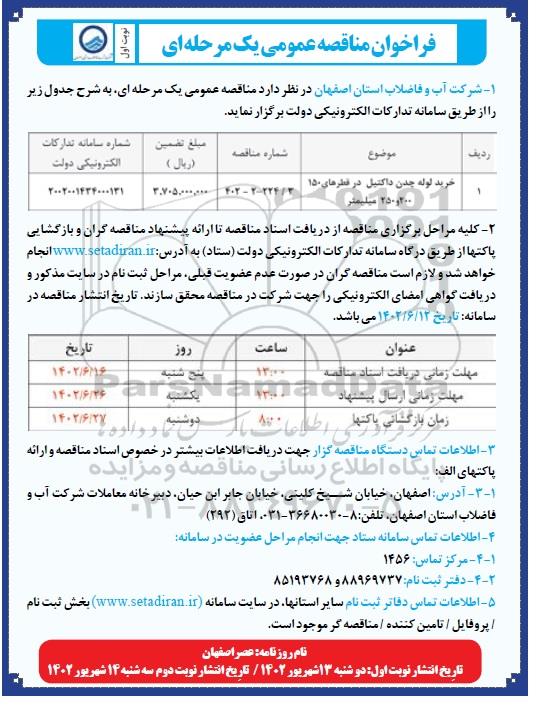 فراخوان مناقصه عمومی یک مرحله ای
نوبت اول
۱- شرکت آب و فاضلاب استان اصفهان در نظر دارد مناقصه عمومی یک مرحله ای، به شرح جدول زیر
را از طریق سامانه تدارکات الکترونیکی دولت برگزار نماید.
ردیف موضوع شماره مناقصه مبلغ تضمین (ریال) شماره سامانه تدارکات الکترونیکی دولت
۱ خرید لوله چدن داکتیل در قطرهای ۱۵۰ ۲۰۰و۲۵۰ میلیمتر ۴۰۲-۲-۲۲۴/۳ ۳.۷۰۵.۰۰۰.۰۰۰ ۲۰۰۲۰۰۱۴۳۴۰۰۰۱۳۱
۲- کلیه مراحل برگزاری مناقصه از دریافت اسناد مناقصه تا ارائه پیشنهاد مناقصه گران و بازگشایی
پاکتها از طریق درگاه سامانه تدارکات الکترونیکی دولت (ستاد) به آدرس: www.setadiran.ir انجام
خواهد شد و لازم است مناقصه گران در صورت عدم عضویت قبلی، مراحل ثبت نام در سایت مذکور و
دریافت گواهی امضای الکترونیکی را جهت شرکت در مناقصه محقق سازند. تاریخ انتشار مناقصه در
سامانه: تاریخ ۱۴۰۲/۶/۱۲ می باشد.
عنوان ساعت روز تاریخ
مهلت زمانی دریافت اسناد مناقصه ۱۳:۰۰ پنج شنبه ۱۴۰۲/۶/۱۶
مهلت زمانی ارسال پیشنهاد ۱۳:۰۰ یکشنبه ۱۴۰۲/۶/۲۶
زمان بازگشائی پاکتها ۸:۰۰ دوشنبه ۱۴۰۲/۶/۲۷
۳- اطلاعات تماس دستگاه مناقصه گزار جهت دریافت اطلاعات بیشتر در خصوص اسناد مناقصه و ارائه
پاکتهای الف:
۳-۱- آدرس: اصفهان، خیابان شیخ کلینی، خیابان جابر ابن حیان، دبیرخانه معاملات شرکت آب و
فاضلاب استان اصفهان، تلفن:۸-۳۶۶۸۰۰۳۰-۰۳۱، اتاق (۲۹۲)
۴- اطلاعات تماس سامانه ستاد جهت انجام مراحل عضویت در سامانه:
۴-۱- مرکز تماس: ۱۴۵۶
۴-۲- دفتر ثبت نام: ۸۸۹۶۹۷۳۷ و ۸۵۱۹۳۷۶۸
۵- اطلاعات تماس دفاتر ثبت نام سایر استانها، در سایت سامانه (www.setadiran.ir) بخش ثبت نام
/ پروفایل / تامین کننده / مناقصه گر موجود است.
نام روزنامه: عصر اصفهان
تاریخ انتشار نوبت اول: دو شنبه ۱۳ شهریور ۱۴۰۲ / تاریخ انتشار نوبت دوم سه شنبه ۱۴ شهریور ۱۴۰۲
ParsNamadData
پایگاه اطلاع رسانی مناقصه و مزایده
۰۲۱-۸۸۳۴۹۶۷۰-۵